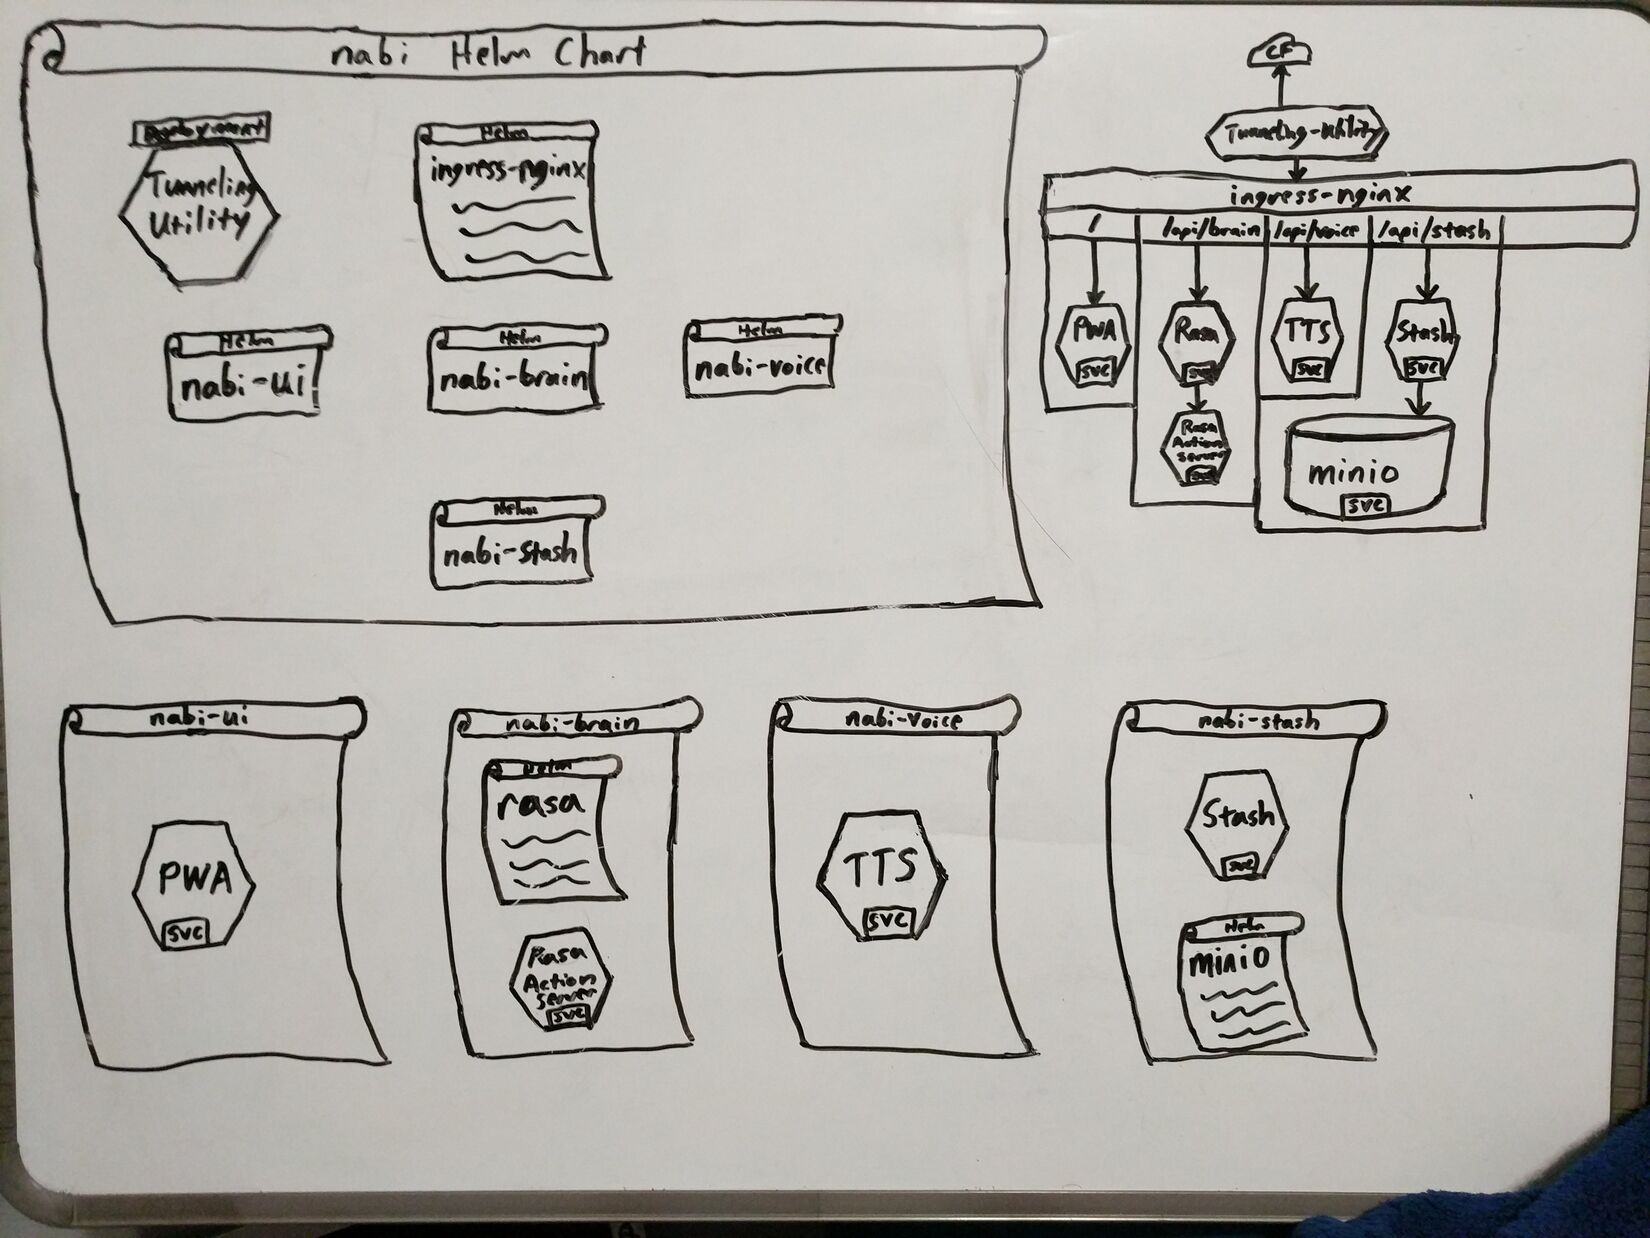 nabi Helm Chart
Deployment
Tunneling
Utility
Helm
ingress-nginx
Helm
nabi-ui
Helm
nabi-brain
Helm
nabi-voice
Helm
nabi-stash
CF
Tunneling-Utility
ingress-nginx
/
/api/brain
/api/voice
/api/stash
PWA
svc
Rasa
svc
TTS
svc
Stash
svc
Rasa
Action
Server
svc
minio
svc
nabi-ui
PWA
svc
nabi-brain
Helm
rasa
Rasa
Action
Server
svc
nabi-voice
TTS
svc
nabi-stash
Stash
svc
Helm
minio